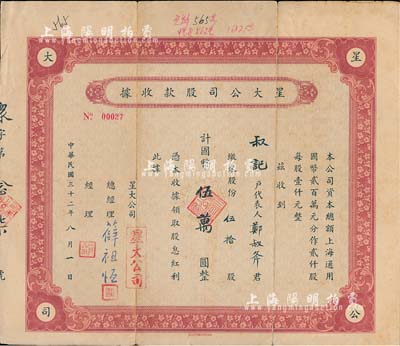 上海陽明拍賣
565
星
大
公
司
星大公司股款收據
No 00027
本公司資本總額上海通用
國幣貳百萬元分作貳仟股
每股壹仟元整
茲收到
叔記 戶代表人 鄭叔斧 君
繳股份 伍拾 股
計國幣 伍萬 圓整
憑本收據領取股息紅利
此據
星大公司
總經理 薛祖恆
經理
星大公司
中華民國三十二年八月一日
字第
號
上海陽明拍賣